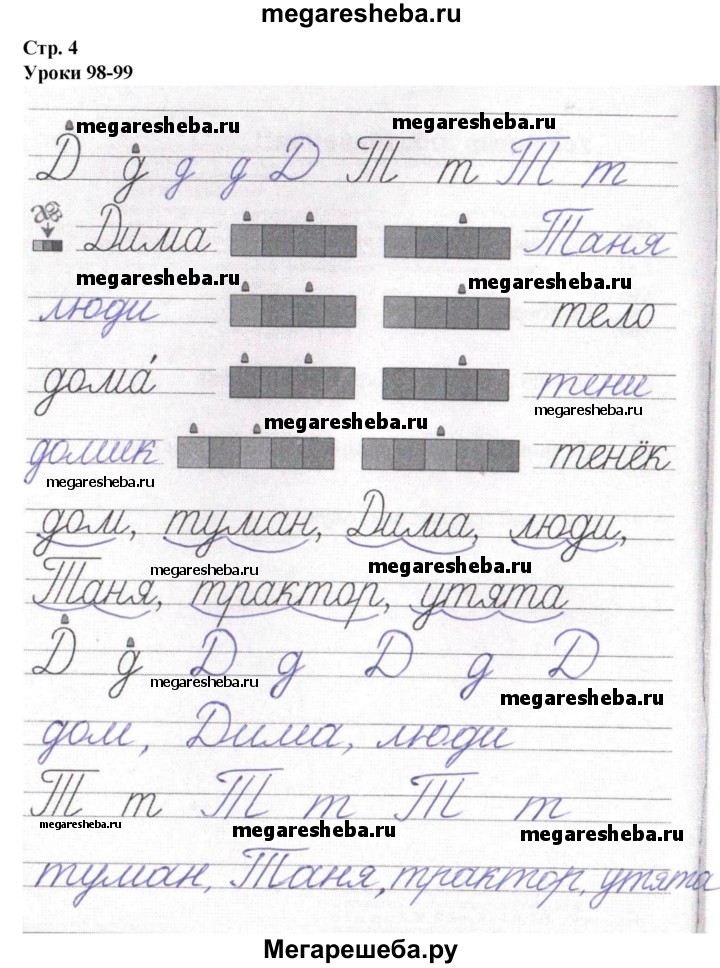 megaresheba.ru
Стр. 4
Уроки 98-99
megaresheba.ru megaresheba.ru
Д д д д Д Т т Т т
Дима Таня
megaresheba.ru megaresheba.ru
люди тело
дома́ тени
megaresheba.ru megaresheba.ru
домик тенёк
megaresheba.ru
дом, туман, Дима, люди,
megaresheba.ru megaresheba.ru
Таня, трактор, утята
Д д Д д Д д Д
megaresheba.ru megaresheba.ru
дом, Дима, люди
Т т Т т Т т
megaresheba.ru megaresheba.ru megaresheba.ru
туман, Таня, трактор, утята
Мегарешеба.ру